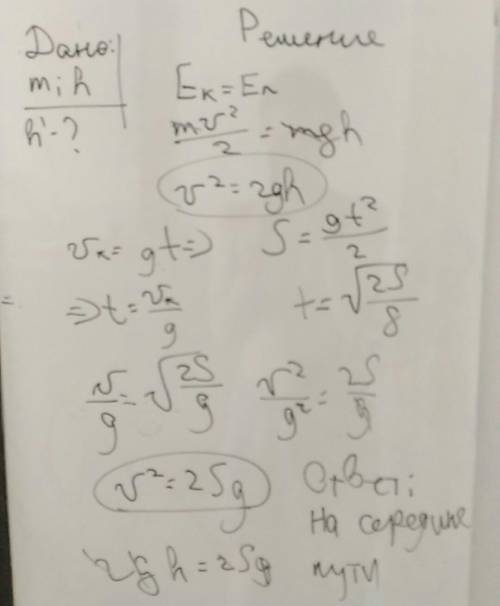 Дано:
Решение
m; h
h' - ?
Eк = Eп
mv²/2 = mgh
v² = 2gh
vк = gt =>
S = gt²/2
=> t = vк/g
t = √2S/g
v/g = √2S/g
v²/g² = 2S/g
v² = 2Sg
Ответ:
на середине
2gh = 2Sg
пути